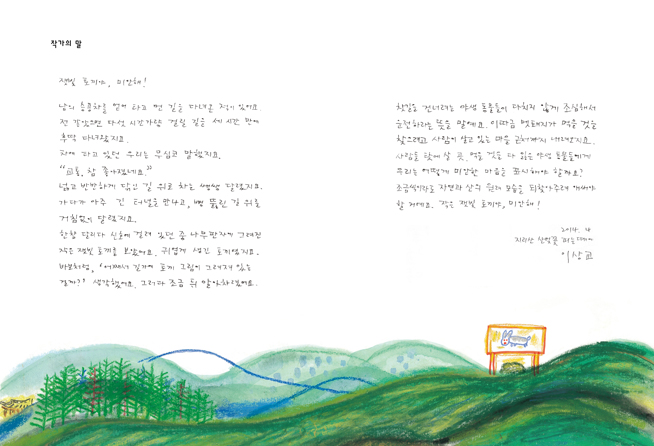 작가의 말
잿빛 토끼야, 미안해!
남의 승용차를 얻어 타고 먼 길을 다녀온 적이 있어요.
전 같았으면 다섯 시간가량 걸릴 길을 세 시간 만에
후딱 다녀왔지요.
차에 타고 있던 우리는 무심코 말했지요.
"교통, 참 좋아졌네요."
넓고 반반하게 닦인 길 위로 차는 쌩쌩 달렸지요.
가다가 아주 긴 터널을 만나고, 뻥 뚫린 길 위를
거침없이 달렸지요.
한참 달리다 신호에 걸려 있던 중 나무판자에 그려진
작은 잿빛 토끼를 보았어요. 귀엽게 생긴 토끼였지요.
바보처럼, '어째서 길가에 토끼 그림이 그려져 있는
걸까?' 생각했어요. 그러다 조금 뒤 알아차렸어요.
찻길을 건너려는 야생 동물들이 다치지 않게 조심해서
운전하라는 뜻을 말예요. 이따금 멧돼지가 먹을 것을
찾으려고 사람이 살고 있는 마을 근처까지 내려오지요.
사람들 탓에 살 곳, 먹을 것을 다 잃은 야생 동물들에게
우리는 어떻게 미안한 마음을 표시해야 할까요?
조금씩이라도 자연과 산의 원래 모습을 되찾아주려 애써야
할 거예요. 작은 잿빛 토끼야, 미안해!
2014. 4
지리산 산벚꽃 피는 때에
이상교